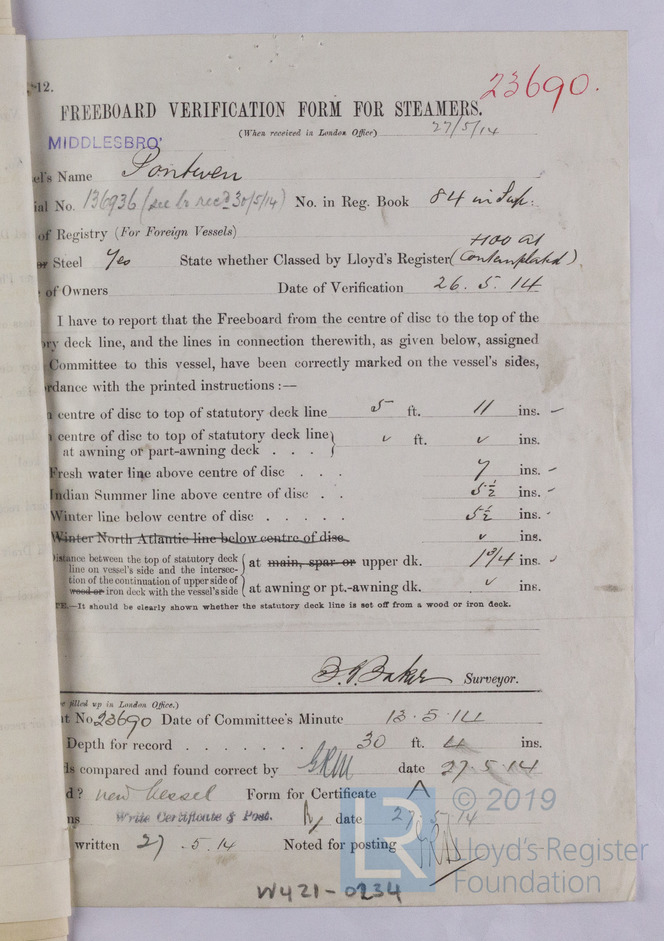 12.
23690.
FREEBOARD VERIFICATION FORM FOR STEAMERS.
(When received in London Office) 27/5/14
MIDDLESBRO'
el's Name Pontwen
ial No. 136936 (see lr recd 30/5/14) No. in Reg. Book 84 in Sup:
of Registry (For Foreign Vessels)
+100 A1
or Steel Yes State whether Classed by Lloyd's Register (contemplated)
of Owners Date of Verification 26.5.14
I have to report that the Freeboard from the centre of disc to the top of the
ry deck line, and the lines in connection therewith, as given below, assigned
Committee to this vessel, have been correctly marked on the vessel's sides,
rdance with the printed instructions :—
centre of disc to top of statutory deck line 5 ft. 11 ins.
centre of disc to top of statutory deck line
at awning or part-awning deck . . . ft. ins.
Fresh water line above centre of disc . . . 7 ins.
Indian Summer line above centre of disc . . 5½ ins.
Winter line below centre of disc . . . . . 5½ ins.
Winter North Atlantic line below centre of disc. ins.
istance between the top of statutory deck
line on vessel's side and the intersec-
tion of the continuation of upper side of
wood or iron deck with the vessel's side
at main, spar or upper dk. 1¾ ins.
at awning or pt.-awning dk. ins.
TE.—It should be clearly shown whether the statutory deck line is set off from a wood or iron deck.
Baker Surveyor.
e filled up in London Office.)
t No 23690 Date of Committee's Minute 13.5.14
Depth for record . . . . . . . 30 ft. 4 ins.
ls compared and found correct by GRM date 27.5.14
d? new vessel Form for Certificate A
ns Write Certificate & Post. date 27.5.14
written 27.5.14 Noted for posting
W421-0234
© 2019
LR
Lloyd's Register
Foundation